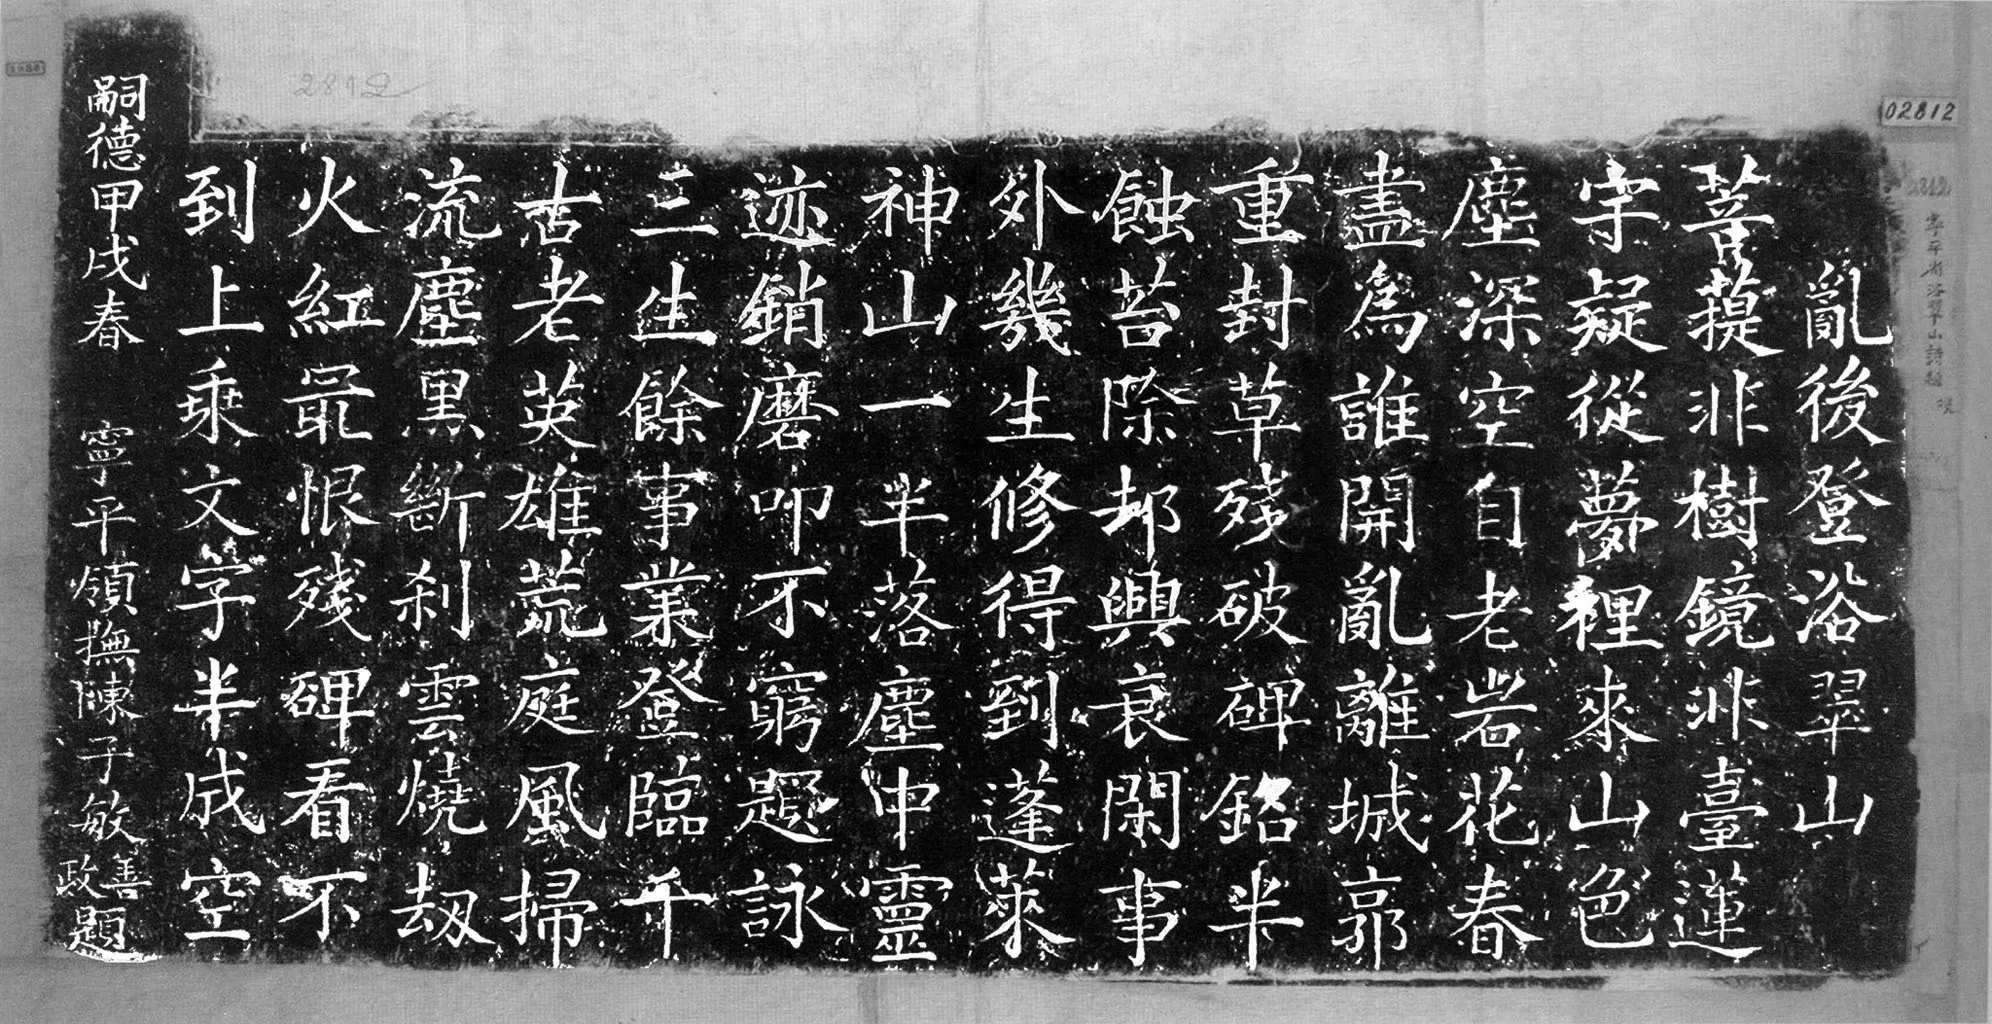 02812
2812
2812
寧平省浴翠山詩題
亂後登浴翠山
菩提非樹鏡非臺蓮
宇疑從夢裡來山色
塵深空自老岩花春
盡為誰開亂離城郭
重封草殘破碑銘半
蝕苔除却興衰閑事
外幾生修得到蓬萊
神山一半落塵中靈
迹銷磨叩不窮題詠
三生餘事業登臨千
古老英雄荒庭風掃
流塵黑斷刹雲燒劫
火紅最恨殘碑看不
到上乘文字半成空
嗣德甲戌春 寧平領撫陳子敏善政題